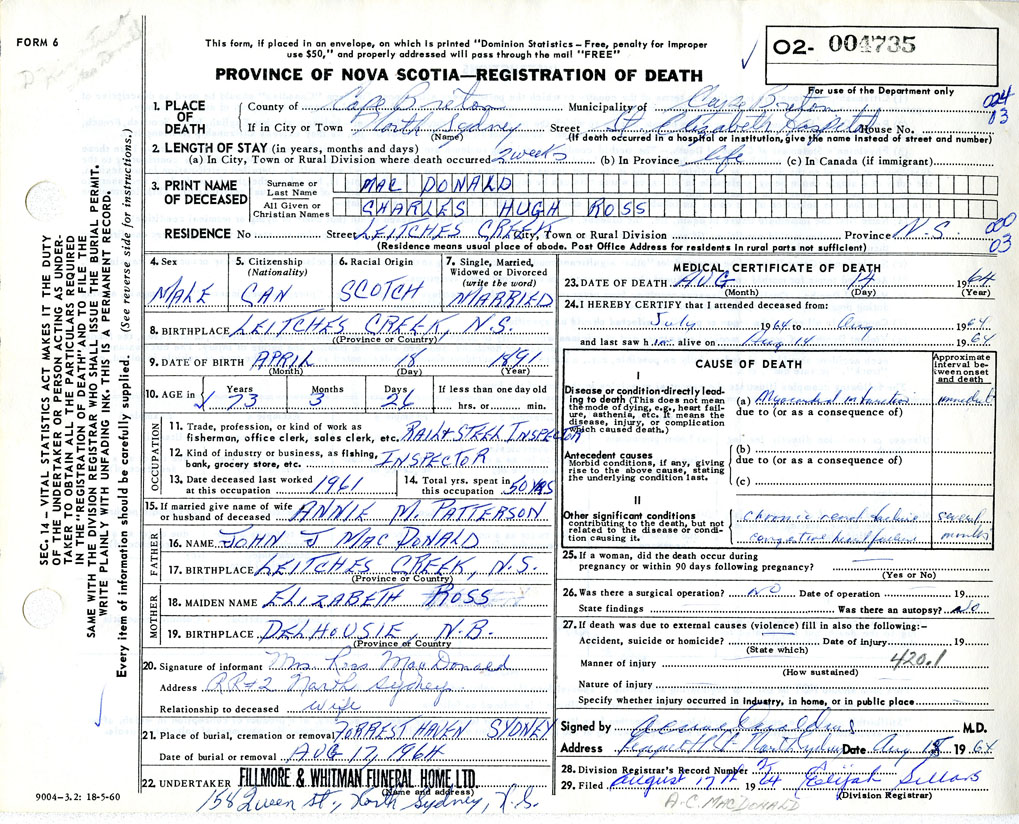 FORM 6
This form, if placed in an envelope, on which is printed "Dominion Statistics – Free, penalty for improper
use $50," and properly addressed will pass through the mail "FREE"
PROVINCE OF NOVA SCOTIA—REGISTRATION OF DEATH
02- 004735
For use of the Department only
SEC. 14 – VITAL STATISTICS ACT MAKES IT THE DUTY
OF THE UNDERTAKER OR PERSON ACTING AS UNDER-
TAKER TO OBTAIN ALL THE PARTICULARS REQUIRED
IN THE "REGISTRATION OF DEATH" AND TO FILE THE
SAME WITH THE DIVISION REGISTRAR WHO SHALL ISSUE THE BURIAL PERMIT.
WRITE PLAINLY WITH UNFADING INK. THIS IS A PERMANENT RECORD.
Every item of information should be carefully supplied. (See reverse side for instructions.)
1. PLACE OF DEATH
County of Cape Breton Municipality of Cape Breton
004
03
If in City or Town North Sydney Street St. Elizabeth Hospital House No.
(Name) (If death occurred in a hospital or institution, give the name instead of street and number)
2. LENGTH OF STAY (in years, months and days)
(a) In City, Town or Rural Division where death occurred 2 weeks (b) In Province life (c) In Canada (if immigrant)
3. PRINT NAME OF DECEASED
Surname or Last Name MAC DONALD
All Given or Christian Names CHARLES HUGH ROSS
RESIDENCE No Street LEITCHES CREEK City, Town or Rural Division Province N.S.
000
03
(Residence means usual place of abode. Post Office Address for residents in rural parts not sufficient)
4. Sex MALE
5. Citizenship (Nationality) CAN
6. Racial Origin SCOTCH
7. Single, Married, Widowed or Divorced (write the word) MARRIED
8. BIRTHPLACE LEITCHES CREEK, N.S.
(Province or Country)
9. DATE OF BIRTH APRIL 18 1891
(Month) (Day) (Year)
10. AGE in Years 73 Months 3 Days 26 If less than one day old hrs. or min.
OCCUPATION
11. Trade, profession, or kind of work as
fisherman, office clerk, sales clerk, etc. RAIL & STEEL INSPECTOR
12. Kind of industry or business, as fishing,
bank, grocery store, etc. INSPECTOR
13. Date deceased last worked at this occupation 1961
14. Total yrs. spent in this occupation 50 YRS
15. If married give name of wife
or husband of deceased ANNIE M. PATTERSON
FATHER
16. NAME JOHN J MAC DONALD
17. BIRTHPLACE LEITCHES CREEK, N.S.
(Province or Country)
MOTHER
18. MAIDEN NAME ELIZABETH ROSS
19. BIRTHPLACE DELHOUSIE, N.B.
(Province or Country)
20. Signature of informant Mrs Ross MacDonald
Address RR#2 North Sydney
Relationship to deceased wife
21. Place of burial, cremation or removal FORREST HAVEN SYDNEY
Date of burial or removal AUG 17, 1964
22. UNDERTAKER FILLMORE & WHITMAN FUNERAL HOME, LTD.
(Name and address)
158 Queen st., North Sydney, N.S.
9004–3.2: 18-5-60
MEDICAL CERTIFICATE OF DEATH
23. DATE OF DEATH AUG 14 1964
(Month) (Day) (Year)
24. I HEREBY CERTIFY that I attended deceased from:
July 1964 to Aug 1964
and last saw him alive on Aug 14 1964
CAUSE OF DEATH
Approximate interval between onset and death
I
Disease or condition directly lead-
ing to death (This does not mean
the mode of dying, e.g., heart fail-
ure, asthenia, etc. It means the
disease, injury, or complication
which caused death.)
(a) Myocardial infarction immediate
due to (or as a consequence of)
Antecedent causes
Morbid conditions, if any, giving
rise to the above cause, stating
the underlying condition last.
(b)
due to (or as a consequence of)
(c)
II
Other significant conditions
contributing to the death, but not
related to the disease or condi-
tion causing it.
chronic renal failure several
congestive heart failure months
25. If a woman, did the death occur during
pregnancy or within 90 days following pregnancy?
(Yes or No)
26. Was there a surgical operation? NO Date of operation 19
State findings Was there an autopsy? NO
27. If death was due to external causes (violence) fill in also the following:–
Accident, suicide or homicide? Date of injury 19
(State which)
Manner of injury 420.1
(How sustained)
Nature of injury
Specify whether injury occurred in Industry, in home, or in public place
Signed by M.D.
Address North Sydney Date Aug 15 1964
28. Division Registrar's Record Number
29. Filed August 17th 1964 Elijah Sellars
(Division Registrar)
A.C. MACDONALD